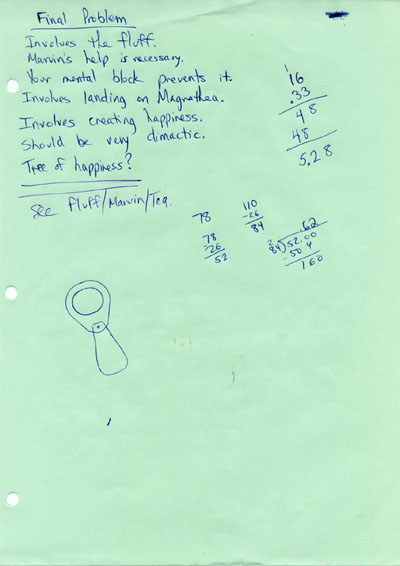 Final Problem
Involves the fluff.
Marvin's help is necessary.
Your mental block prevents it.
Involves landing on Magrathea.
Involves creating happiness.
Should be very climactic.
Tree of happiness?
See Fluff/Marvin/Tea.
1
16
.33
48
48
5.28
78
78
-26
52
110
-26
84
.62
84)52.00
-50 4
160